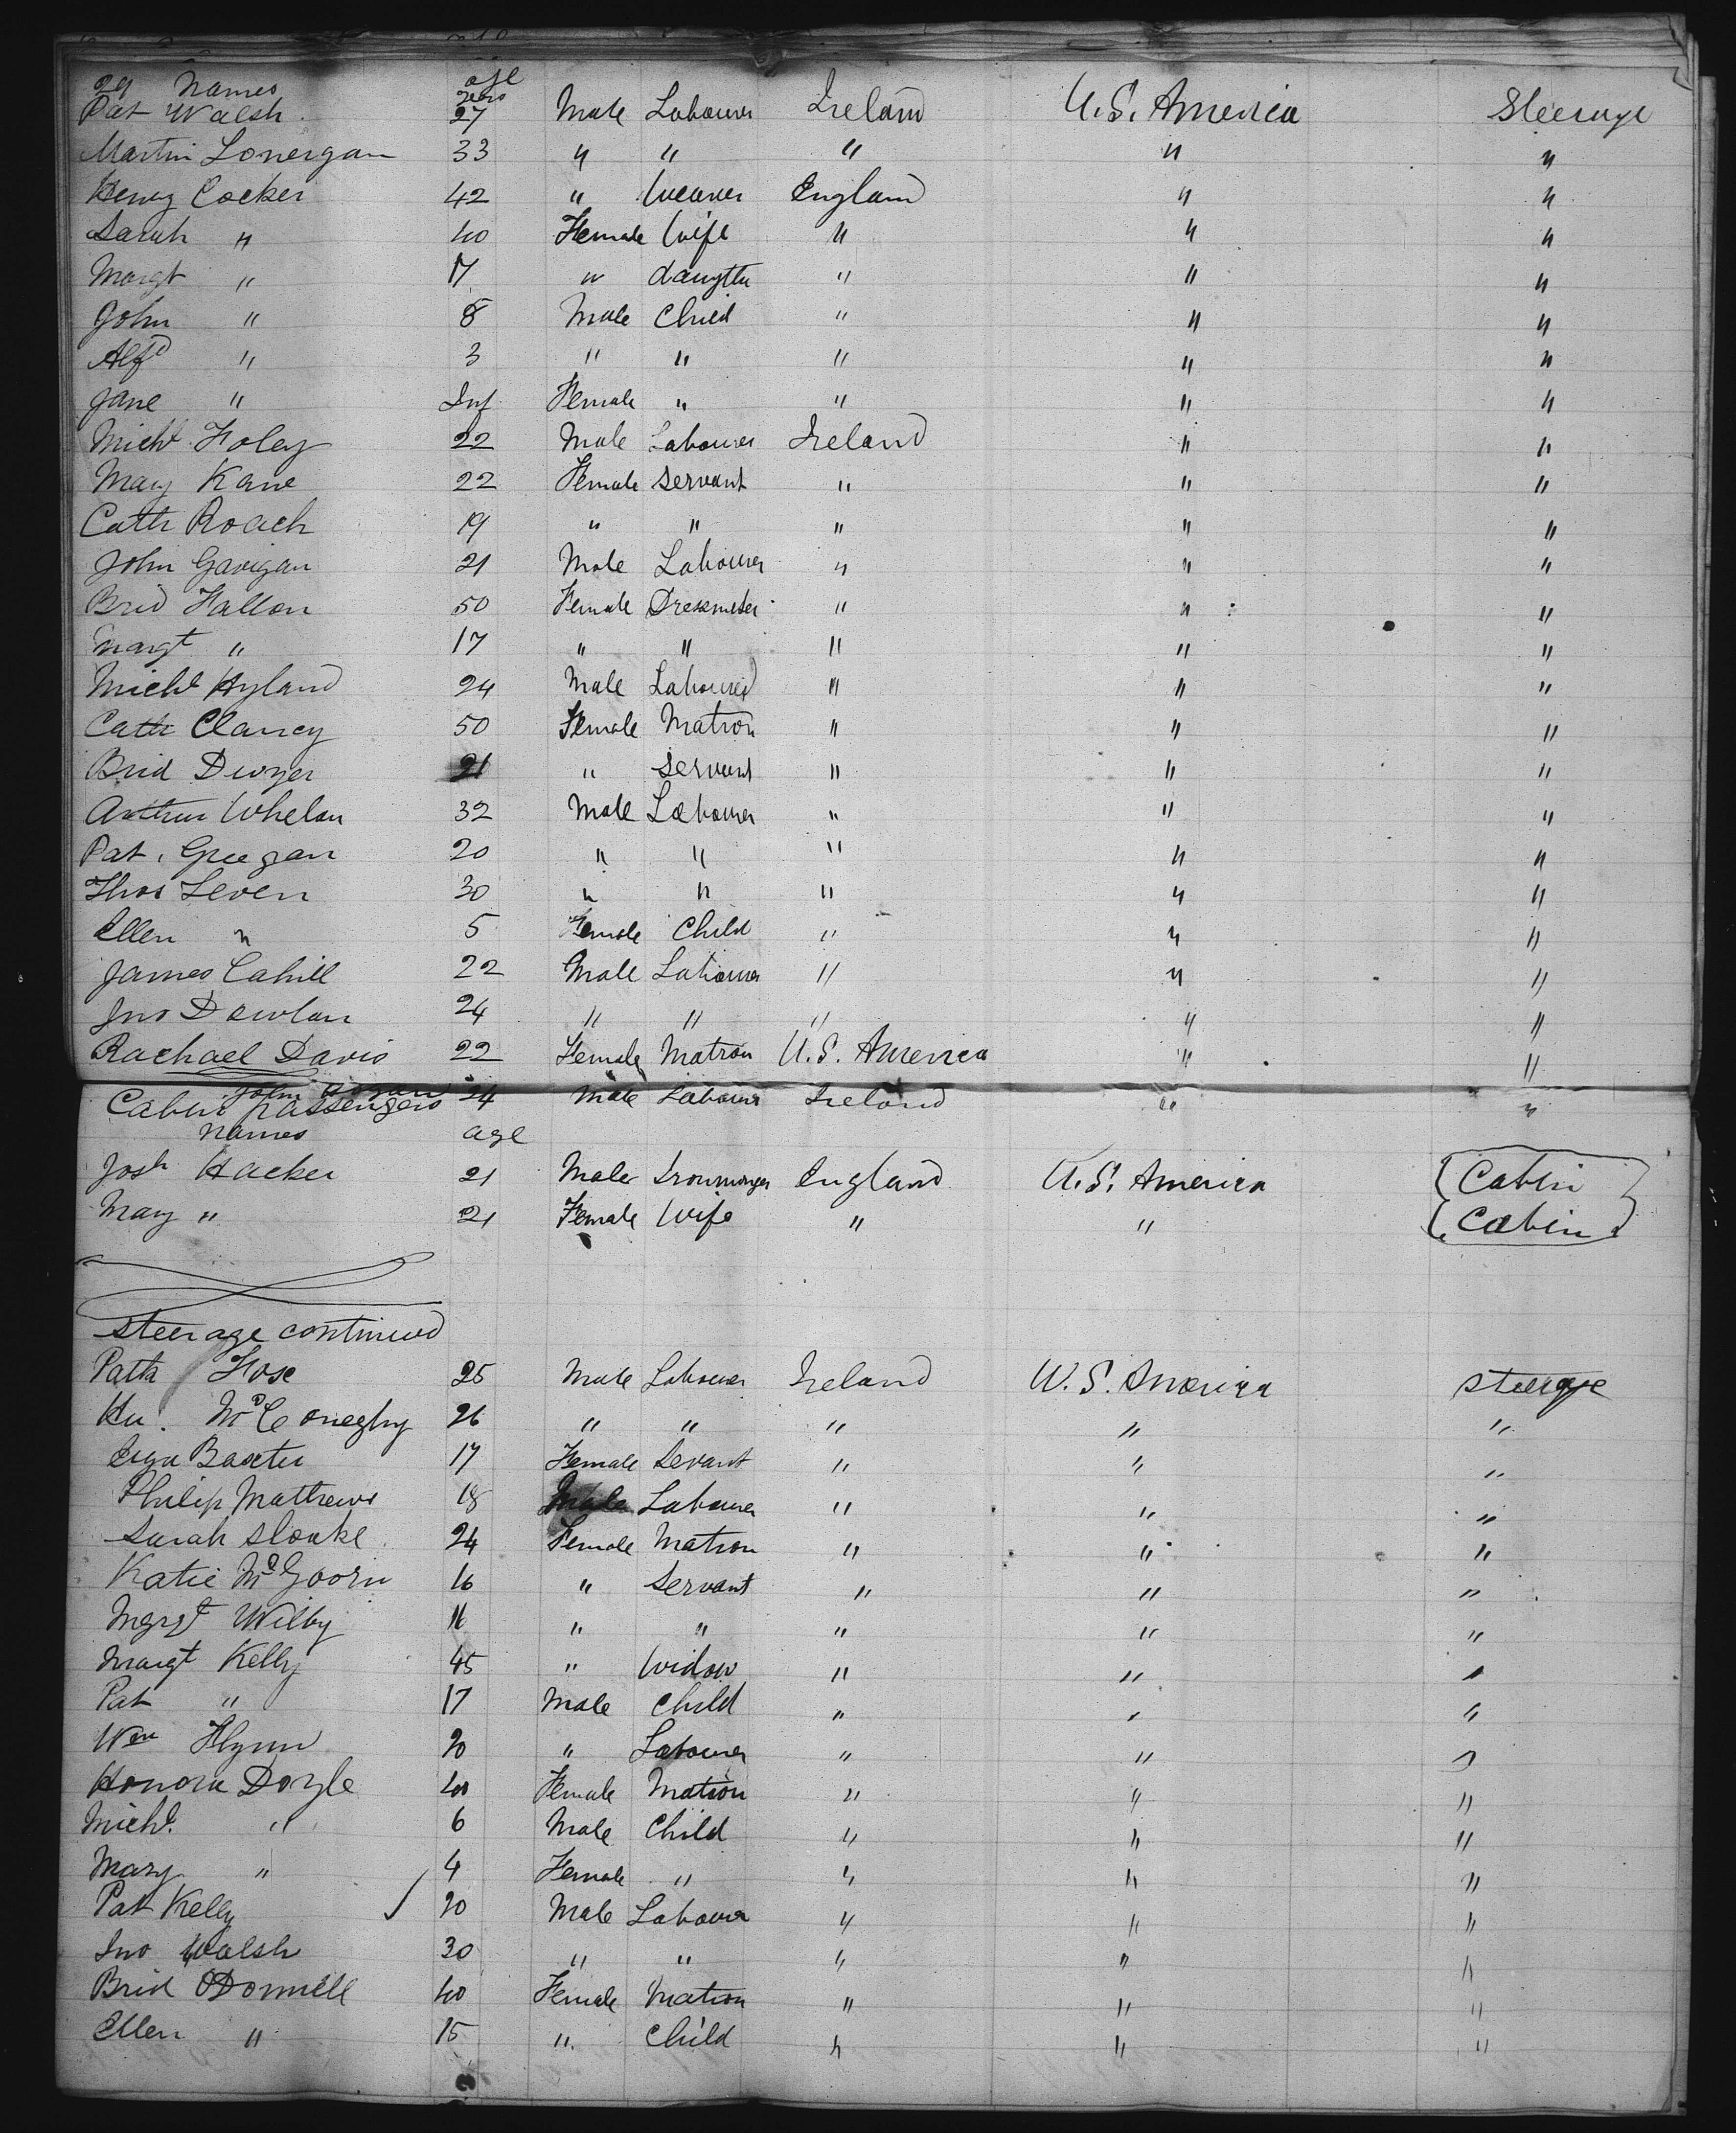 29 Names age
years
Pat Walsh 27 Male Labourer Ireland U.S. America Steerage
Martin Lonergan 33 " " " " "
Henry Cocker 42 " Weaver England " "
Sarah " 40 Female Wife " " "
Margt " 17 " daugtter " " "
John " 8 Male Child " " "
Alfd " 3 " " " " "
Jane " Inf Female " " " "
Michl Foley 22 Male Labourer Ireland " "
Mary Kane 22 Female Servant " " "
Cath Roach 19 " " " " "
John Gavigan 21 Male Labourer " " "
Brid Fallon 50 Female Dressmaker " " "
Margt " 17 " " " " "
Michl Hyland 24 Male Labourer " " "
Cath Clancy 50 Female Matron " " "
Brid Dwyer 21 " Servant " " "
Arthur Whelan 32 Male Labourer " " "
Pat. Greegan 20 " " " " "
Thos Leven 30 " " " " "
Ellen " 5 Female Child " " "
James Cahill 22 Male Labourer " " "
Jno Dowlan 24 " " " " "
Rachael Davis 22 Female Matron U.S. America " "
John 24 Male Labourer Ireland " "
Cabin passengers
Names age
Josh Hacker 21 Male Ironmonger England U.S. America Cabin
Mary " 21 Female Wife " " Cabin
Steerage continued
Patk Fox 25 Male Labourer Ireland U.S. America Steerage
Hu. McConeghy 26 " " " " "
Baxter 17 Female Servant " " "
Philip Mathews 18 Male Labourer " " "
Sarah Sloake 24 Female Matron " " "
Katie McGoorn 16 " Servant " " "
Margt Wilby 16 " " " " "
Margt Kelly 45 " Widow " " "
Pat " 17 Male Child " " "
Wm Flynn 20 " Labourer " " "
Honora Doyle 40 Female Matron " " "
Michl. " 6 Male Child " " "
Mary " 4 Female " " " "
Pat Kelly ✓ 20 Male Labourer " " "
Jno Walsh 30 " " " " "
Brid ODonnell 40 Female Matron " " "
Ellen " 15 " Child " " "